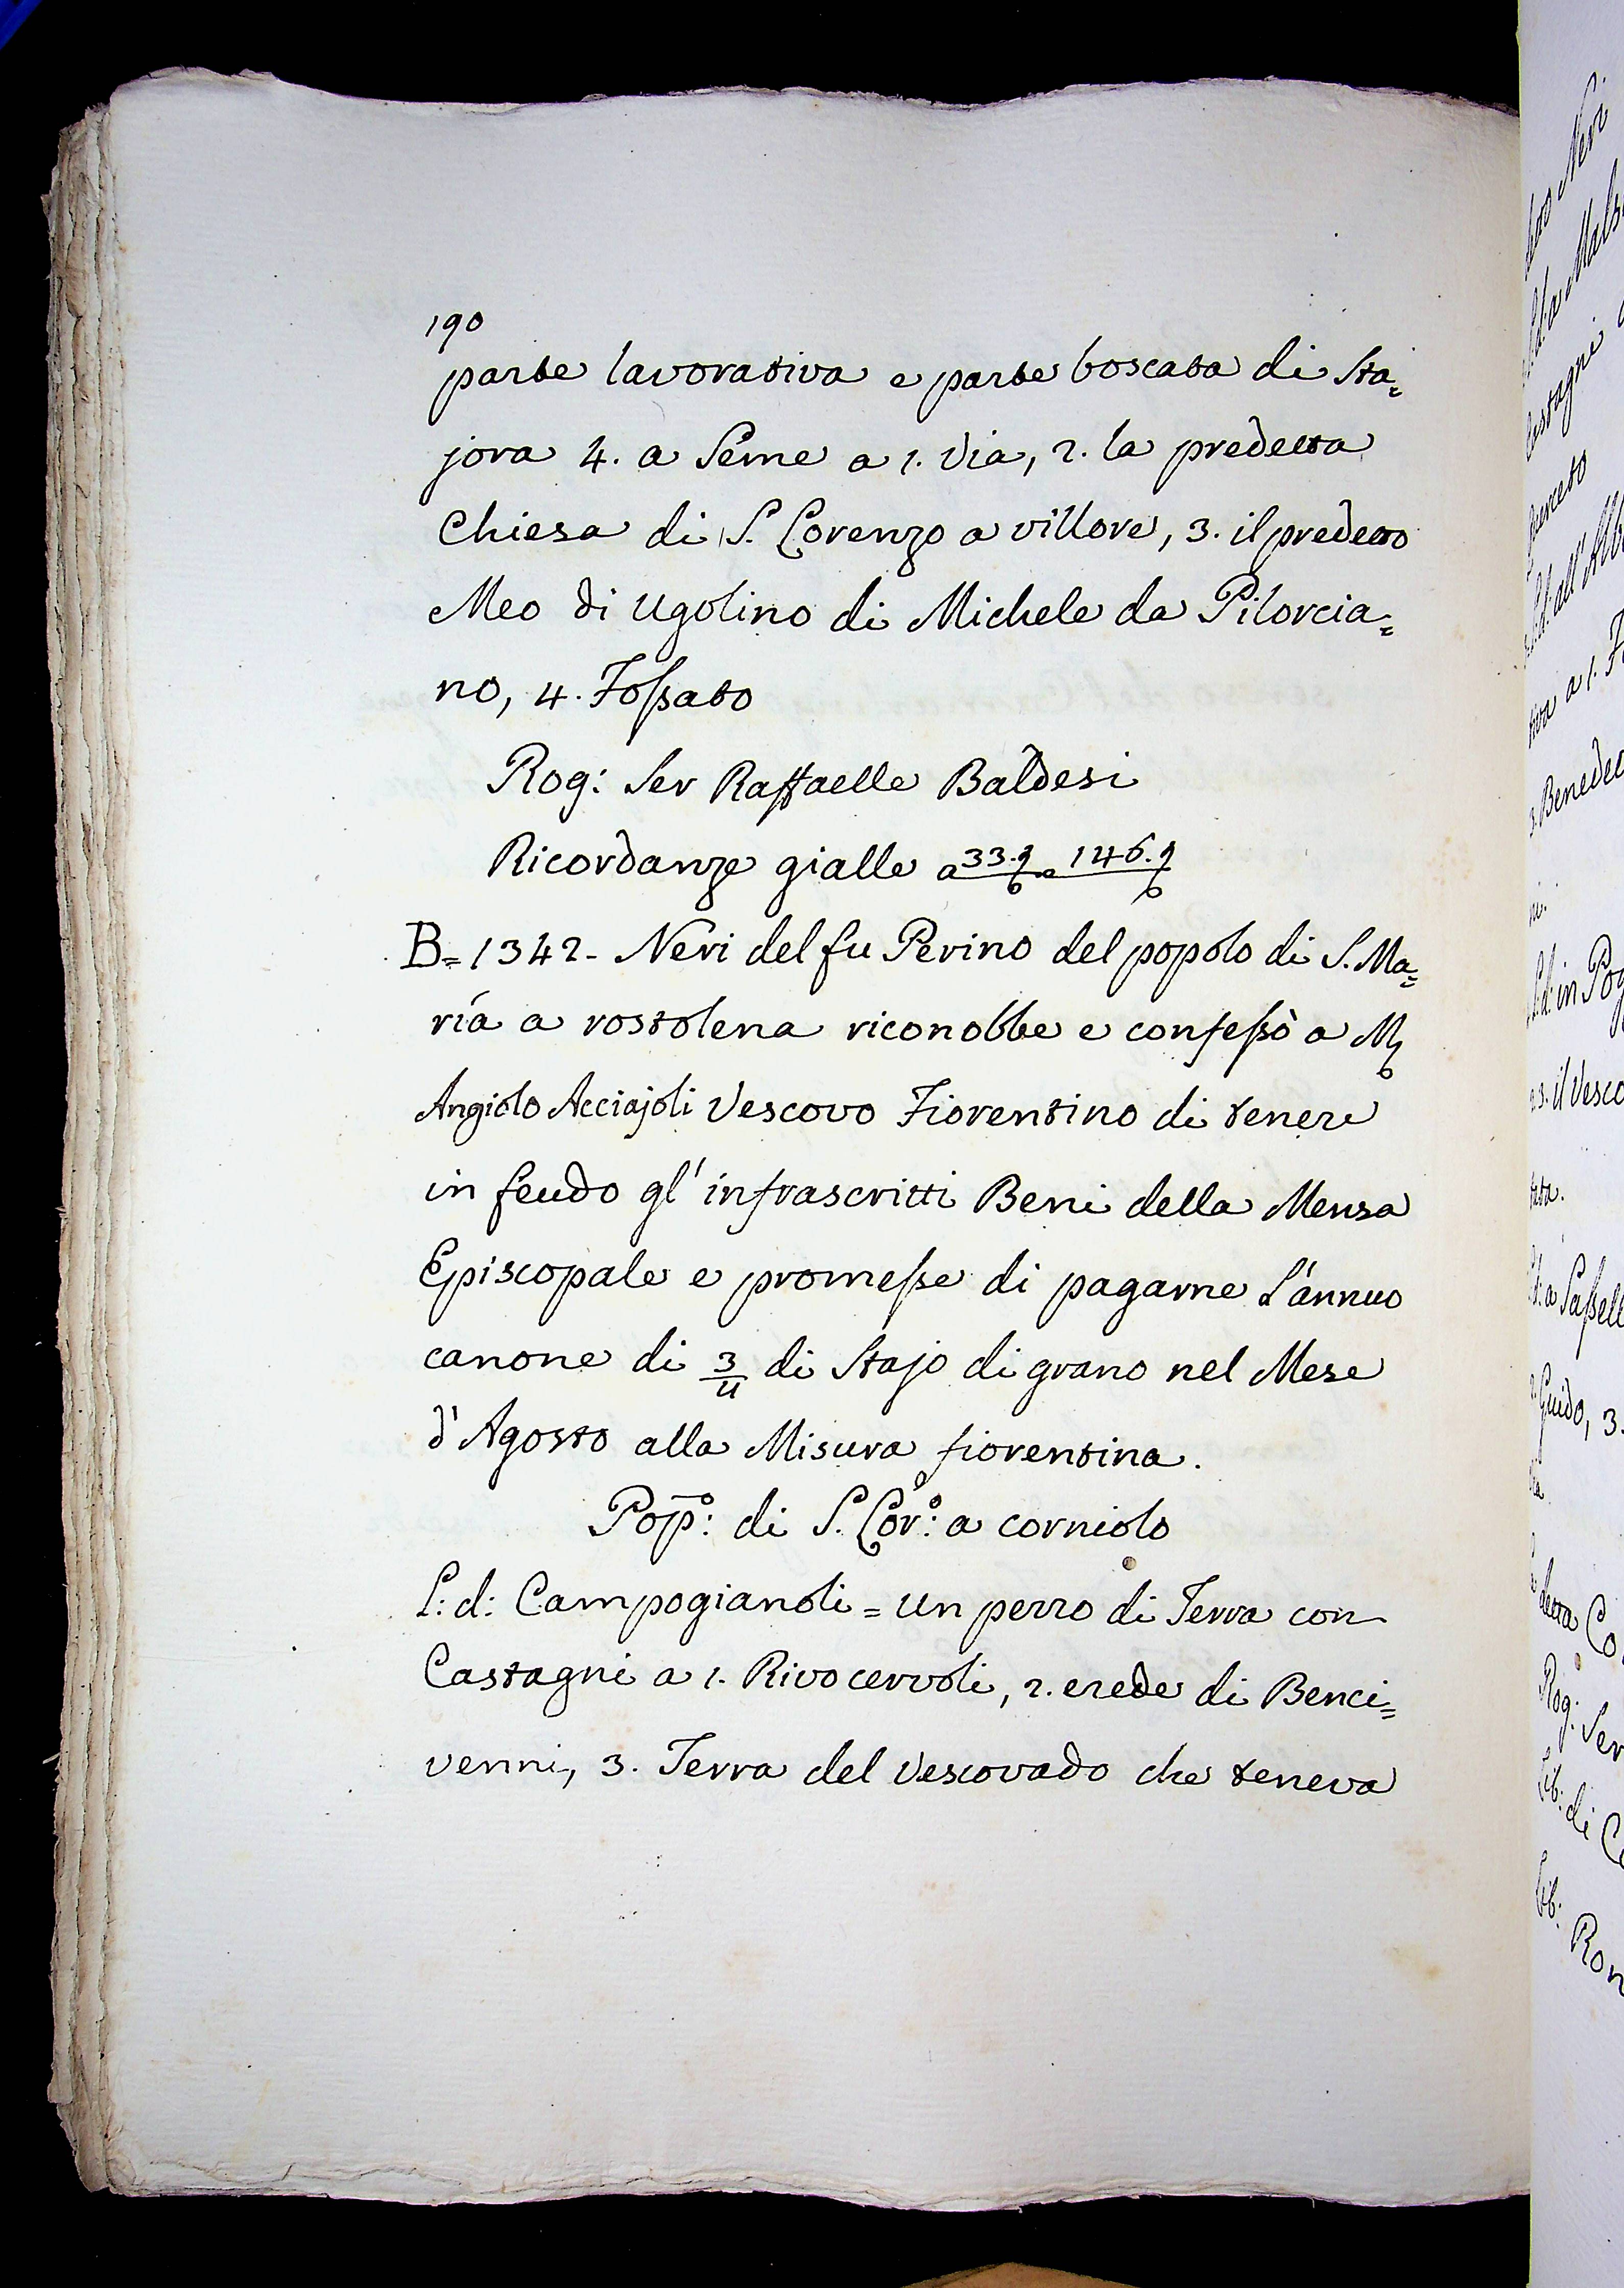 190
parte lavorativa e parte boscata di Sta=
jora 4. a Seme a 1. Via, 2. la predetta
Chiesa di S. Lorenzo a villore, 3. il predetto
Meo di Ugolino di Michele da Pilorcia=
no, 4. Fossato
Rog: Ser Raffaelle Baldesi
Ricordanze gialle a 33. e 146.
B= 1342 - Neri del fu Perino del popolo di S. Ma=
ría a rostolena riconobbe e confessò a M
Angiolo Acciajoli Vescovo Fiorentino di tenere
in feudo gl' infrascritti Beni della Mensa
Episcopale e promesse di pagarne l'annuo
canone di 3/4 di Stajo di grano nel Mese
d'Agosto alla Misura fiorentina.
Pop̄º: di S. Lorº: a corniolo
L: d: Campogianoli = un pezzo di Terra con
Castagni a 1. Rivocervoli, 2. erede di Benci=
venni, 3. Terra del Vescovado che teneva
Neri
Castagni
a 1.
in
3. il Vesco
Guido, 3.
detta
Rog. Ser
Lib: di
Lib: